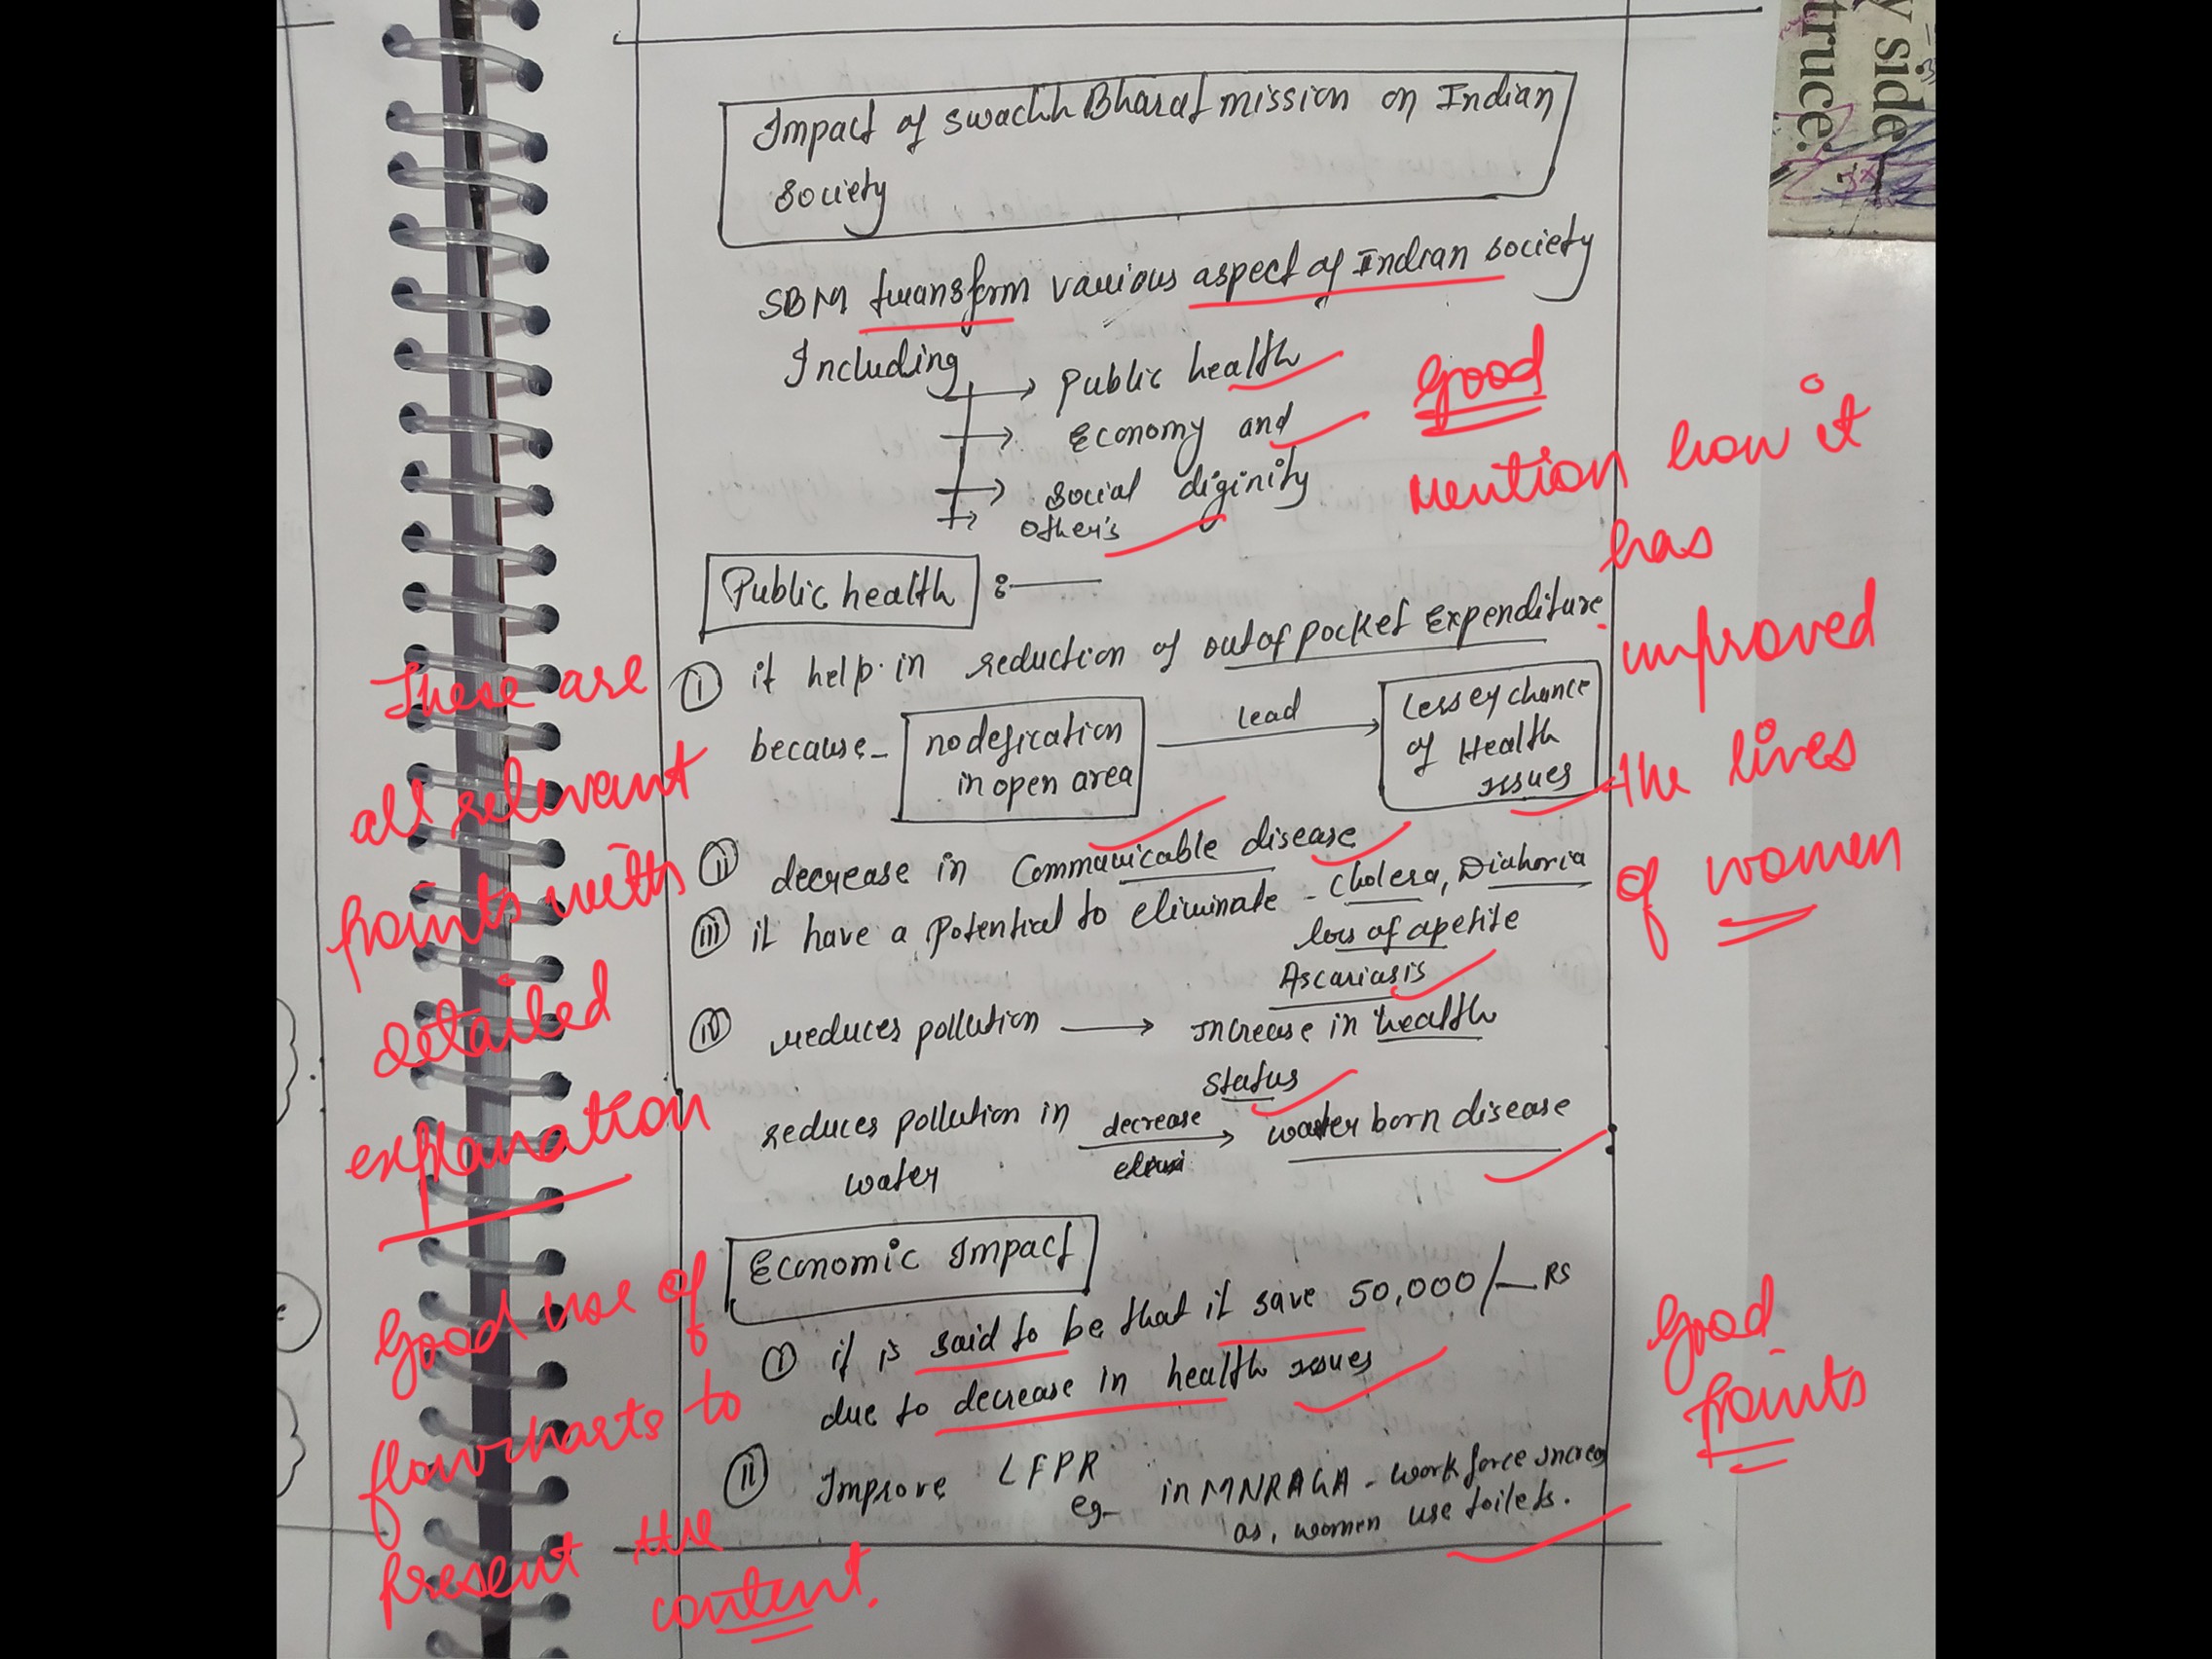 y side
truce.
Impact of swachh Bharat mission on Indian
society
SBM transform various aspect of Indian society
Including
Public health
Economy and
social diginity
other's
Good
Mention how it
has
improved
the lives
of women
Public health :
(i) it help in reduction of out of pocket Expenditure
because - no defication
in open area
lead
Lesser chance
of Health
issues
(ii) decrease in Communicable disease
(iii) it have a potential to eliminate - cholera, Diahoria
loss of apetite
Ascariasis
(iv) reduces pollution → increase in health
status
reduces pollution in
water
decrease
water born disease
These are
all relevant
points with
detailed
explanation
Economic Impact
(i) it is said to be that it save 50,000/- RS
due to decrease in health issues
(ii) Improve LFPR
eg- in MNRAGA - work force increa
as, women use toilets.
Good use of
flowcharts to
present the
content.
Good
points